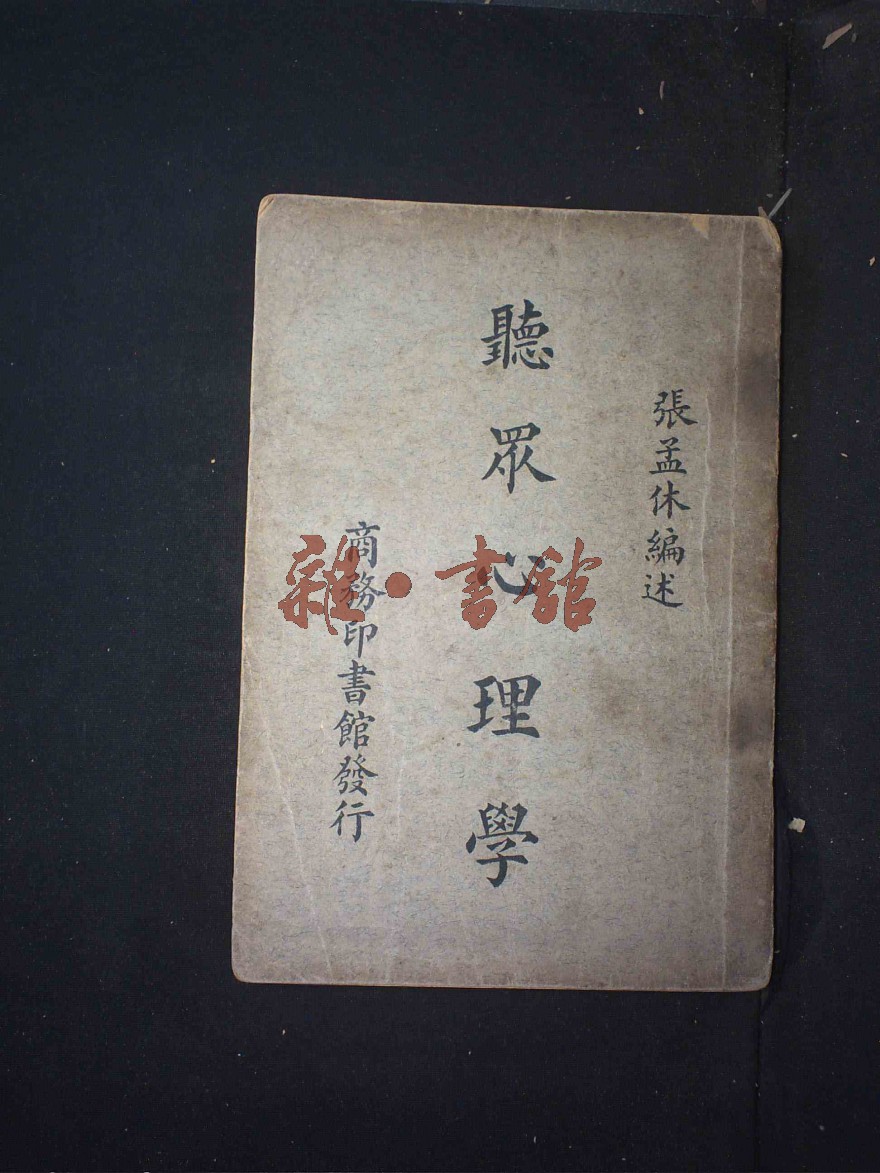 張孟休編述
聽眾心理學
商務印書館發行
雜·書館